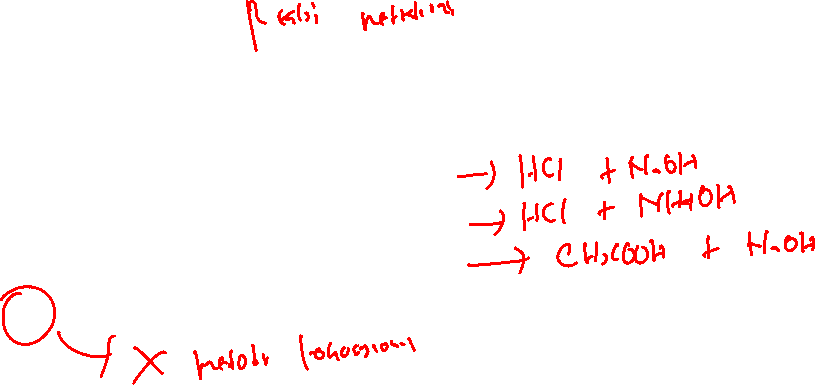 Reaksi netralisasi
→ HCl + NaOH
→ HCl + NH4OH
→ CH3COOH + NaOH
X metode